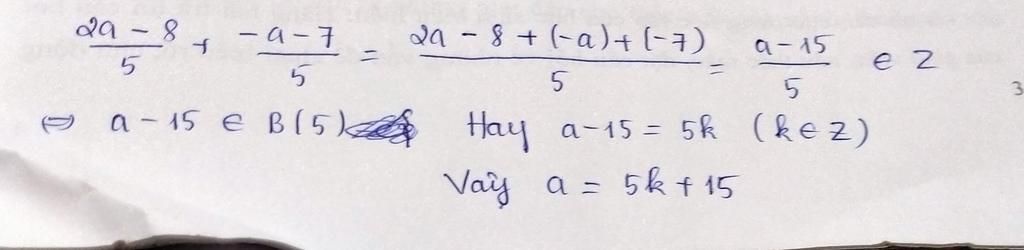 2a - 8 / 5 + -a - 7 / 5 = 2a - 8 + (-a) + (-7) / 5 = a - 15 / 5 ∈ Z
⇔ a - 15 ∈ B(5) Hay a - 15 = 5k (k ∈ Z)
Vaỹ a = 5k + 15
3